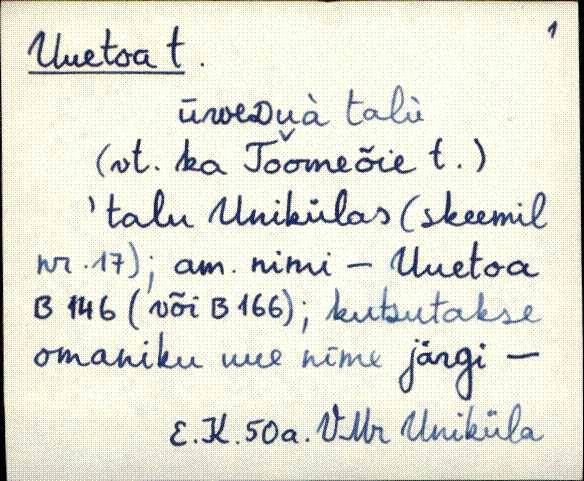 Uuetoa t. 1
talù
(vt. ka Toomeõie t.)
'talu Unikülas (skeemil
nr. 17); am. nimi – Uuetoa
B 146 (või B 166); kutsutakse
omaniku uue nime järgi –
E.K. 50 a. VMr Uniküla